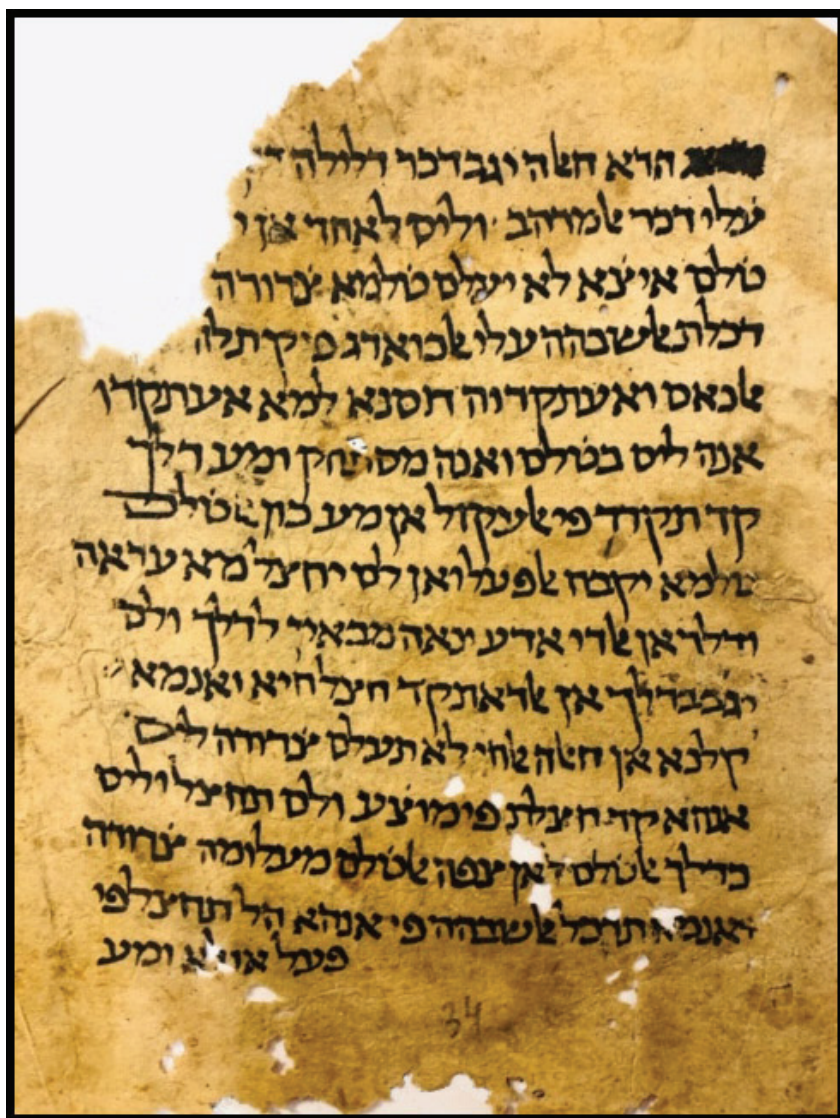 הדא חﭏה יגב דכר דלילה
עלי דכר ﭏמדהב וליס לאחד אן י
טׄלם איצׄא לא יעלם טׄלמא צׄרורה
דכלת ﭏשבהה עלי ﭏכוארג פי קתלה
ﭏנאס ואעתקדוה חסנא למא אעתקדו
אנה ליס בטׄלם ואנה מסתחק ומע דלך
קד תקרר פי ﭏעקול אן מע כון ﭏטׄלם
טׄלמא יקבח ﭏפעל ואן לם יחצל מא עדאה
ודלך אן ﭏדי אדעינאה מבאין לדלך ולם
יגב בדלך אן ﭏדאת קד חצל חיא ואנמא
קלנא אן חﭏה ﭏחי לא תעלם צׄרורה ליס
אנהא קד חצלת פי מוצׄע ולם תחצל וליס
כדלך ﭏטׄלם לאן צפה ﭏטׄלם מעלומה צׄרורה
ואנמא תדכל ﭏשבהה פי אנהא הל תחצל פי
פעל או לא ומע
34